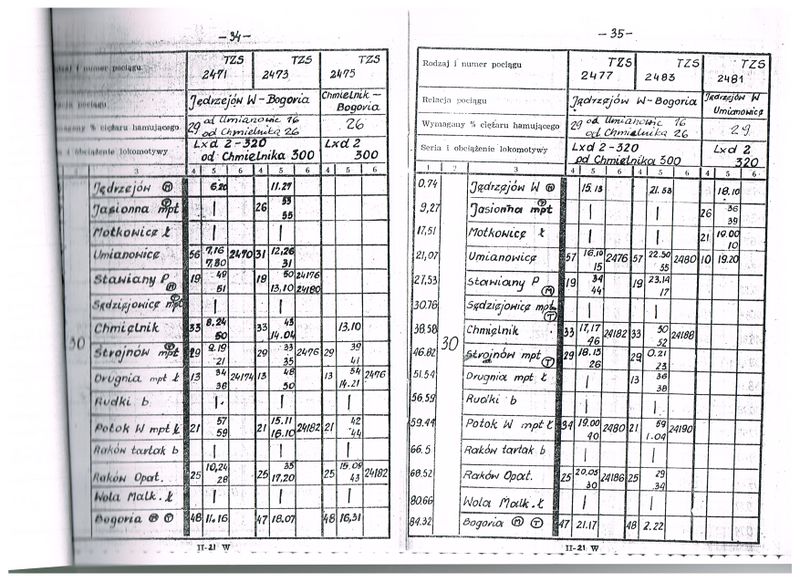 -34-
TZS TZS TZS
Rodzaj i numer pociągu 2471 2473 2475
Relacja pociągu Jędrzejów W-Bogoria Chmielnik-Bogoria
Wymagany % ciężaru hamującego 29 od Umianowic 16 od Chmielnika 26 26
Seria i obciążenie lokomotywy Lxd 2-320 od Chmielnika 300 Lxd 2 300
1 3 4 5 6 4 5 6 4 5 6
Jędrzejów M 6.20 11.27
Jasionna mpt | 26 53 55
Motkowice Ł | |
Umianowice 56 7,16 7,30 2470 31 12,26 31
Stawiany P M 19 49 51 19 50 13,10 24176 24180
Sędziejowice mpt | |
Chmielnik 33 8.24 50 33 43 14.04 13.10
30
Strojnów mpt 29 9.19 21 29 33 35 2476 29 39 41
Drugnia mpt Ł 13 34 36 24174 13 48 50 13 54 14.21 2476
Rudki b | | |
Potok W mpt Ł 21 57 59 21 15.11 16.10 24182 21 42 44
Raków tartak b | | |
Raków Opat. 25 10,24 28 25 35 17,20 25 15.09 43 24182
Wola Malk. Ł | | |
Bogoria M T 48 11.16 47 18.07 48 16,31
II-21 W
-35-
TZS TZS TZS
Rodzaj i numer pociągu 2477 2483 2481
Relacja pociągu Jędrzejów W-Bogoria Jędrzejów W Umianowice
Wymagany % ciężaru hamującego 29 od Umianowic 16 od Chmielnika 26 29
Seria i obciążenie lokomotywy Lxd 2-320 od Chmielnika 300 Lxd 2 320
1 2 3 4 5 6 4 5 6 4 5 6
0.74 Jędrzejów W M 15.13 21.53 18.10
9,27 Jasionna mpt | | 26 36 39
17,51 Motkowice Ł | | 21 19.00 10
21,07 Umianowice 57 16,10 15 2476 57 22.50 55 2480 10 19.20
27,53 Stawiany P M 19 34 44 19 23.14 17
30.76 Sędziejowice mpt T | |
38.58 Chmielnik 33 17,17 46 24182 33 50 52 24188
30
46.82 Strojnów mpt T 29 18.15 26 29 0.21 23
51.54 Drugnia mpt Ł | 13 36 38
56.59 Rudki b | |
59.44 Potok W mpt Ł 34 19.00 40 2480 21 59 1.04 24190
66.5 Raków tartak b | |
68.52 Raków Opat. 25 20.05 30 24186 25 29 34
80.66 Wola Malk. Ł | |
84.32 Bogoria M T 47 21.17 48 2.22
II-21 W